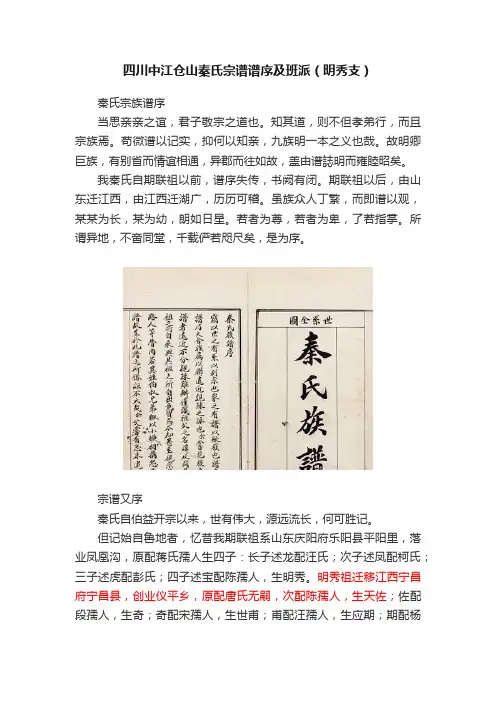 四川中江仓山秦氏宗谱谱序及班派（明秀支）
秦氏宗族谱序
当思亲亲之谊，君子敬宗之道也。知其道，则不但孝弟行，而且
宗族焉。苟微谱以记实，抑何以知亲，九族明一本之义也哉。故明卿
巨族，有别省而情谊相通，异郡而往如故，盖由谱誌明而雍睦昭矣。
我秦氏自期联祖以前，谱序失传，书阙有闭。期联祖以后，由山
东迁江西，由江西迁湖广，历历可稽。虽族众人丁繁，而即谱以观，
某某为长，某为幼，朗如日星。若者为尊，若者为卑，了若指掌。所
谓异地，不啻同堂，千载俨若咫尺矣，是为序。
世系全圖
秦氏族譜
秦氏族譜序
宗谱又序
秦氏自伯益开宗以来，世有伟大，源远流长，何可胜记。
但记始自鲁地者，忆昔我期联祖系山东庆阳府乐阳县平阳里，落
业凤凰沟，原配蒋氏孺人生四子：长子述龙配汪氏；次子述凤配柯氏；
三子述虎配彭氏；四子述宝配陈孺人，生明秀。明秀祖迁移江西宁昌
府宁昌县，创业仪平乡，原配唐氏无嗣，次配陈孺人，生天佐；佐配
段孺人，生奇；奇配宋孺人，生世甫；甫配汪孺人，生应期；期配杨